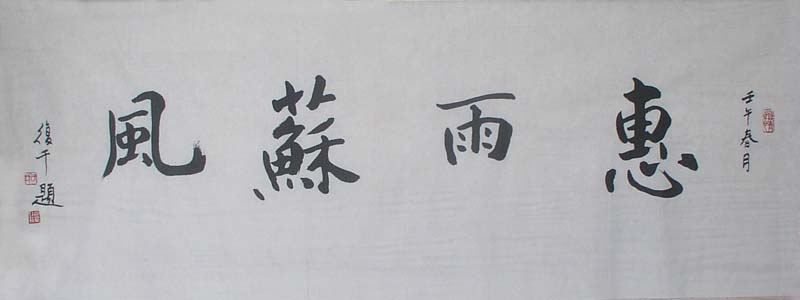 壬午春月
惠雨蘇風
復千題